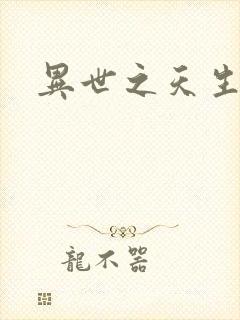 異世之天生
龍不器